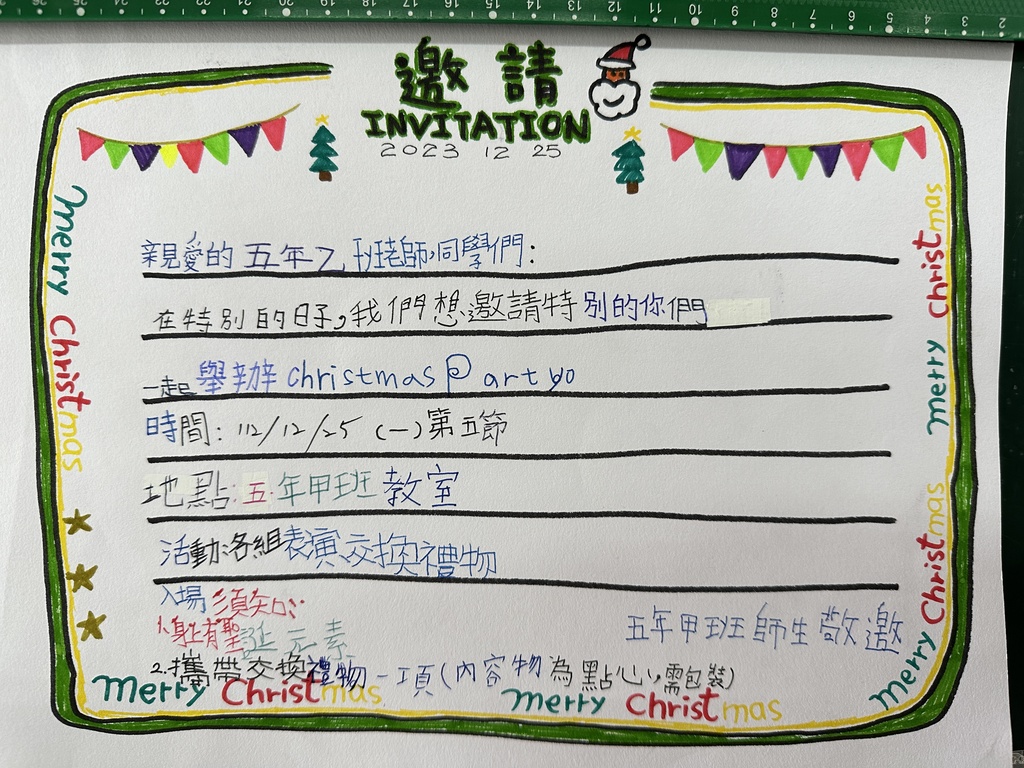 邀請
INVITATION
2023 12 25
親愛的五年乙班老師,同學們:
在特別的日子,我們想邀請特別的你們
一起舉辦christmas Party
時間: 112/12/25 (一)第五節
地點:五年甲班教室
活動:各組表演、交換禮物
入場須知:
1.身上有聖誕元素
2.攜帶交換禮物一項(內容物為點心,需包裝)
五年甲班師生敬邀
Merry Christmas
Merry Christmas
Merry Christmas
Merry Christmas
Merry Christmas